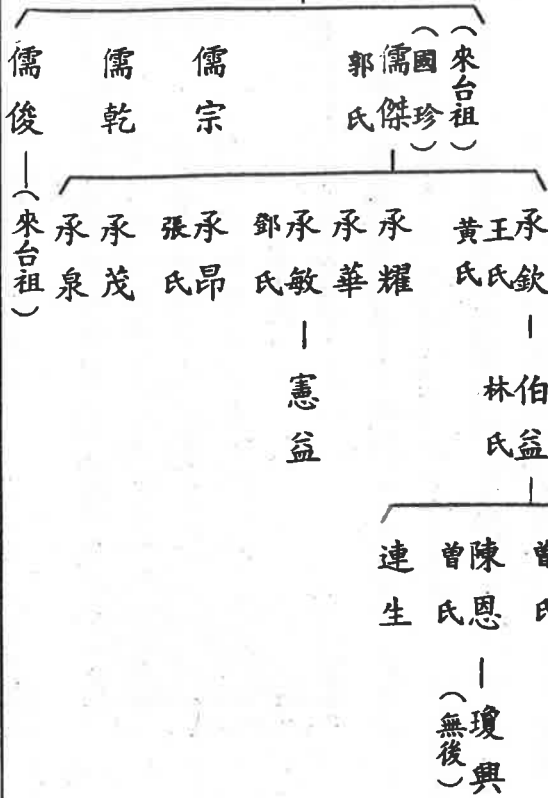 （來台祖）
儒傑（國珍）
郭氏
儒宗
儒乾
儒俊—（來台祖）
承欽
王氏
黃氏
承耀
承華
承敏
鄧氏
承昂
張氏
承茂
承泉
伯益
林氏
憲益
曾氏
陳恩
曾氏
連生
瓊興
（無後）